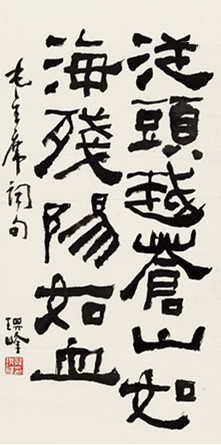 從頭越蒼山如
海殘陽如血
毛主席詞句
琪峰